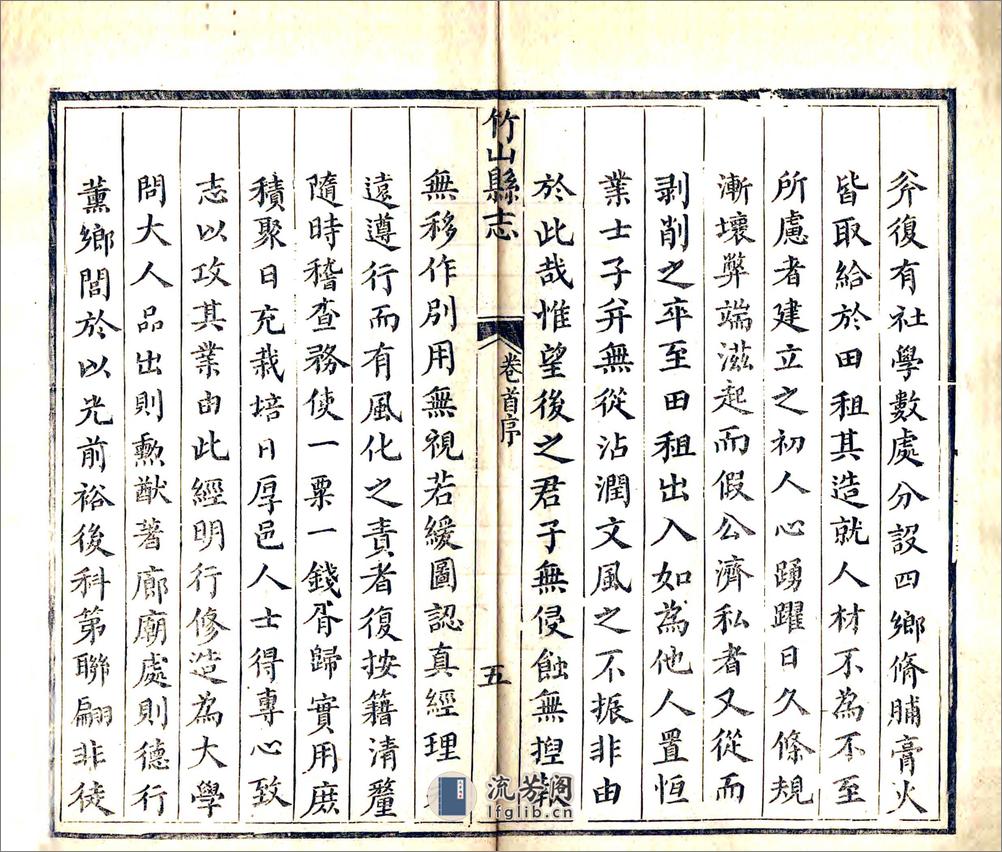 外復有社學數處分設四鄉脩脯膏火
皆取給於田租其造就人材不為不至
所慮者建立之初人心踴躍日久條規
漸壞弊端滋起而假公濟私者又從而
剥削之卒至田租出入如為他人置恒
業士子并無從沾潤文風之不振非由
於此哉惟望後之君子無侵蝕無捏
竹山縣志
卷首序
五
無移作別用無視若緩圖認真經理
遠遵行而有風化之責者復按籍清釐
隨時稽查務使一粟一錢胥歸實用庶
積聚日充栽培日厚邑人士得專心致
志以攻其業由此經明行修造為大學
問大人品出則勲猷著廊廟處則德行
薰鄉閭於以光前裕後科第聯翩非徒
流芳阁
lfglib.cn